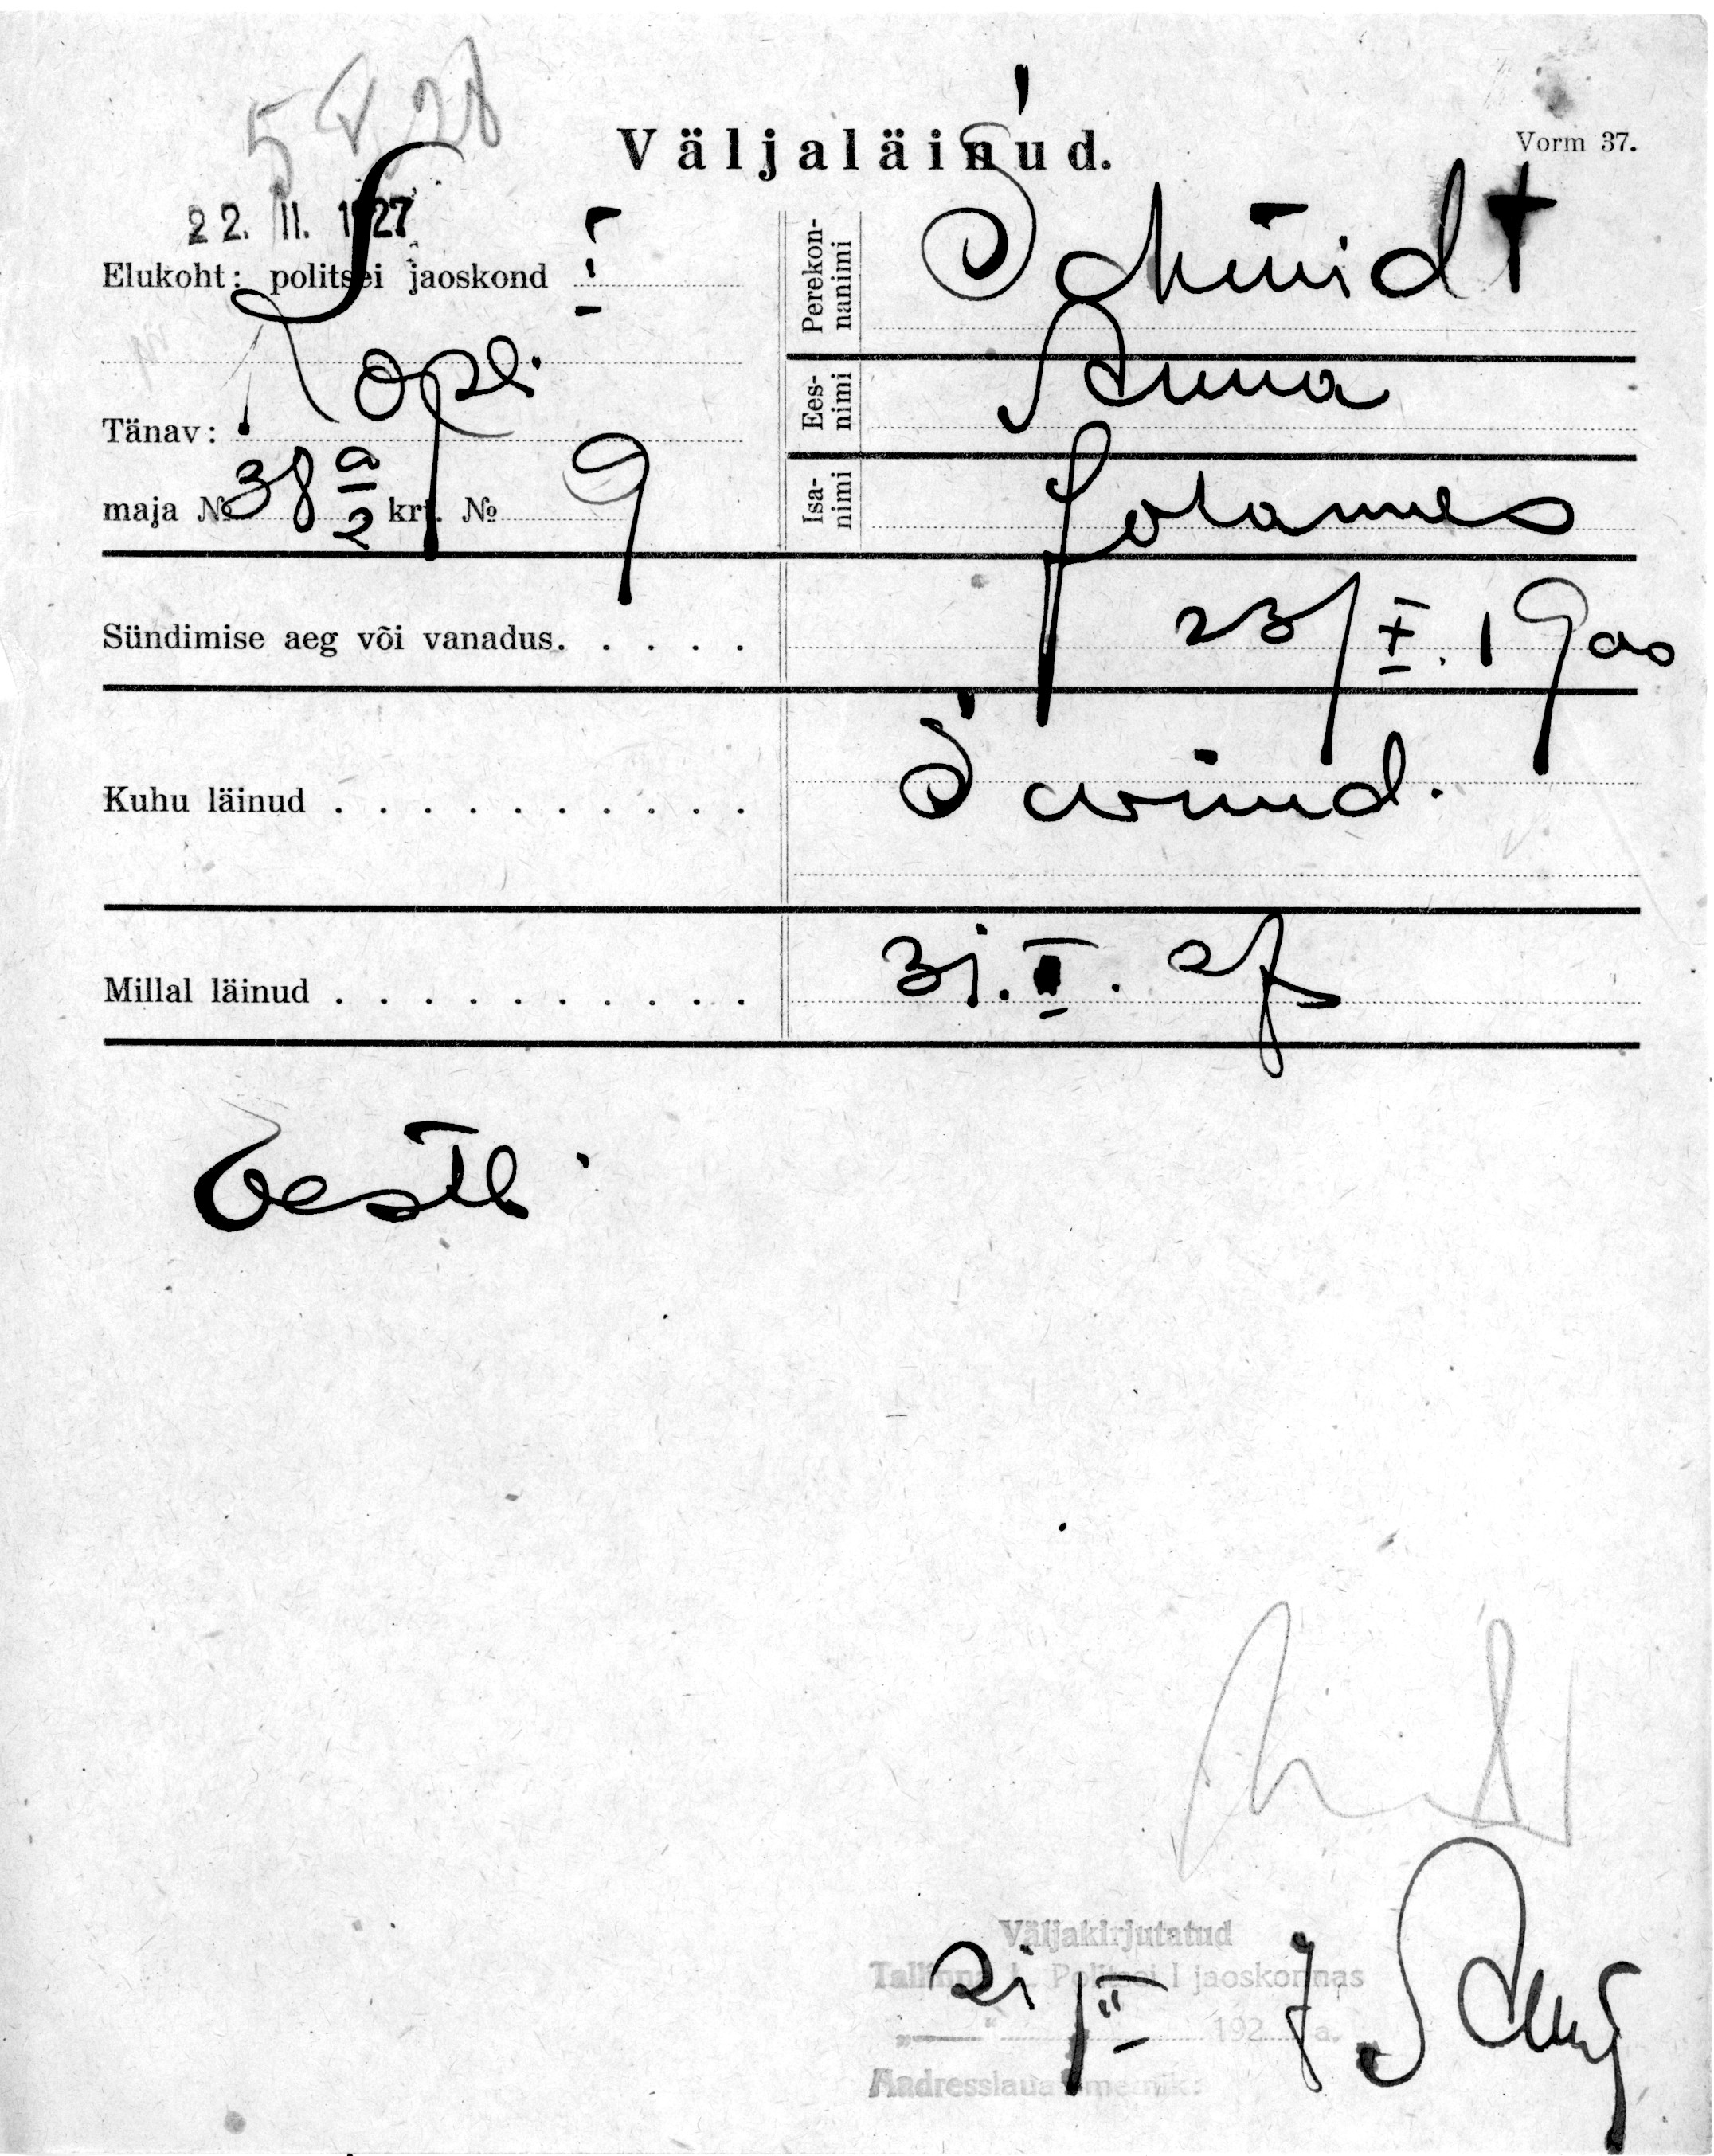 5 V 28
Väljaläinud.
Vorm 37.
22. II. 1927
Elukoht: politsei jaoskond I
Tänav: Kopli
maja № 38 a/2 krt. № 9
Perekonnanimi Schmidt
Eesnimi Anna
Isanimi Johannes
Sündimise aeg või vanadus. . . . . 23/X. 1900
Kuhu läinud . . . . . . . . . . Surnud.
Millal läinud . . . . . . . . . . 31. I. 27
Eesti
Väljakirjutatud
Tallinna L. Politsei I jaoskonnas
21/II 1927 a.
Aadresslaua ametnik: